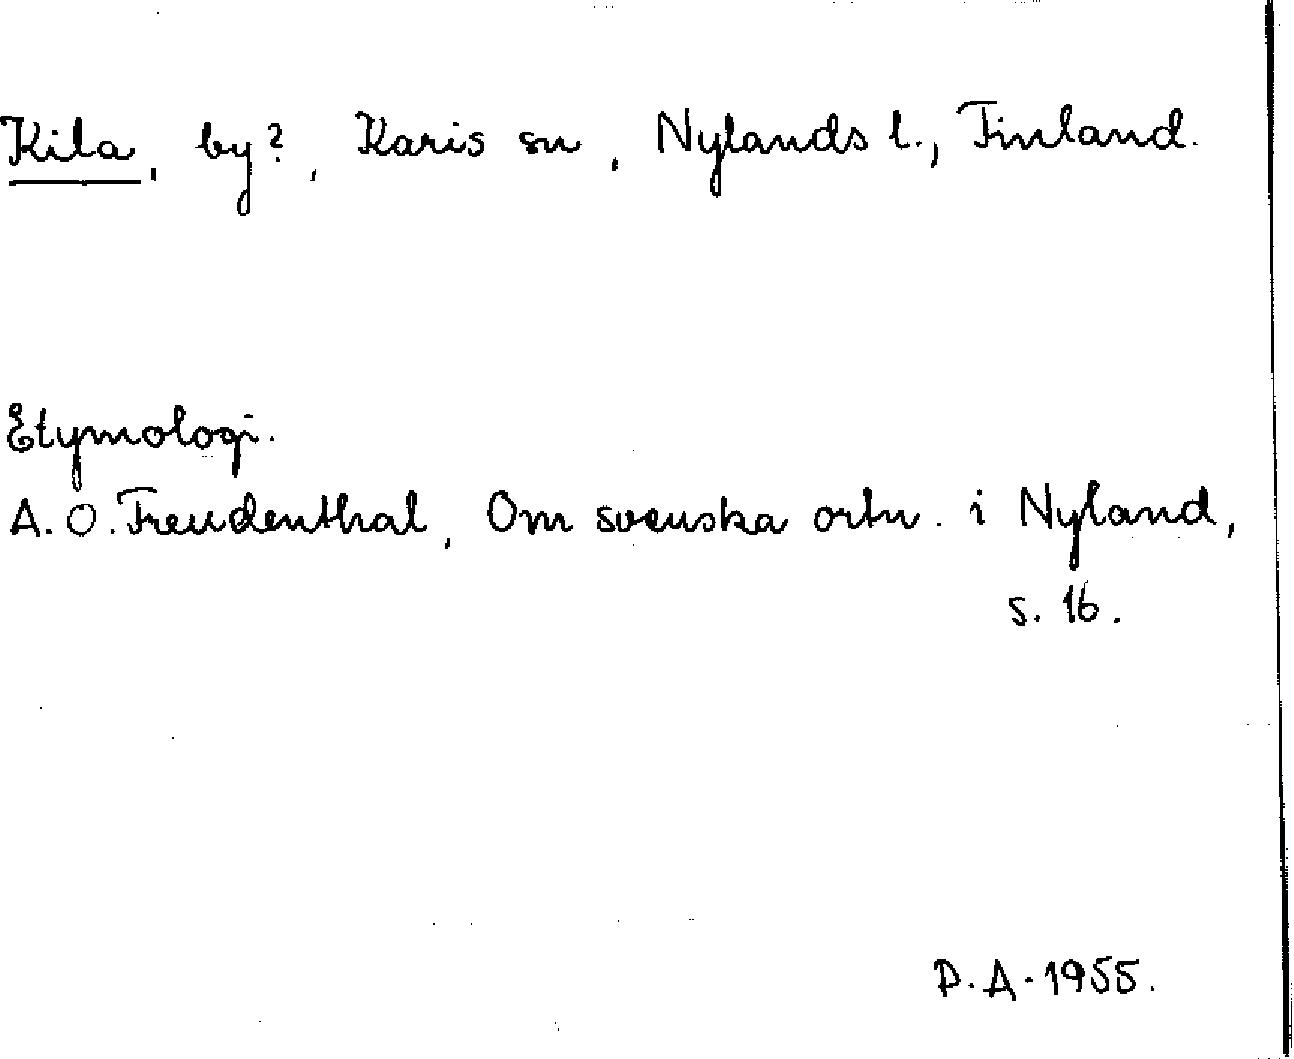 Kila, by?, Karis sn, Nylands l., Finland.
Etymologi.
A. O. Freudenthal, Om svenska ortn. i Nyland,
s. 16.
D. A. 1955.